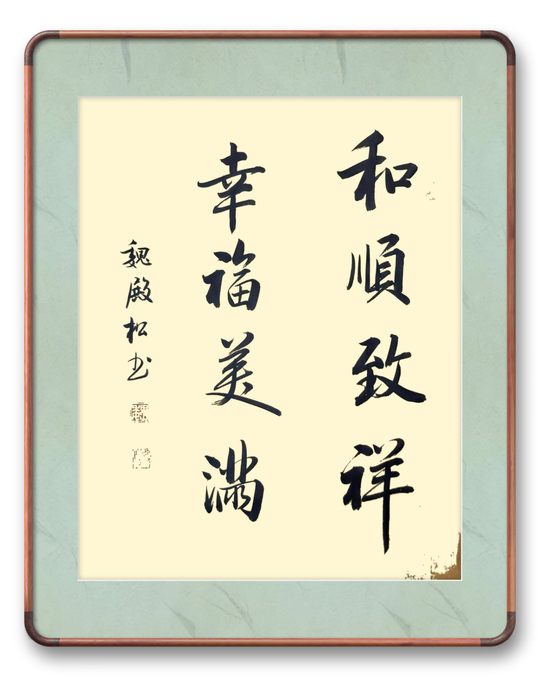 和順致祥
幸福美滿
魏殿松书